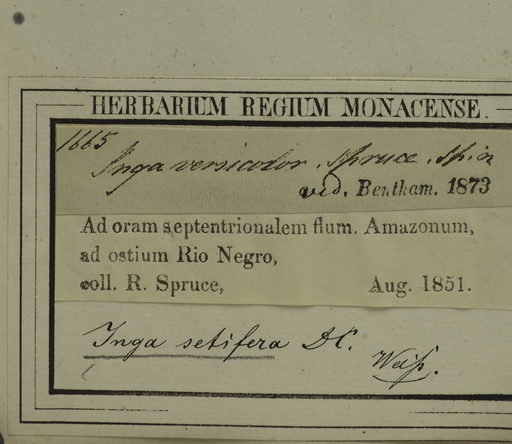 HERBARIUM REGIUM MONACENSE.
1665
Inga versicolor. Spruce.
ved. Bentham. 1873
Ad oram septentrionalem flum. Amazonum,
ad ostium Rio Negro,
coll. R. Spruce, Aug. 1851.
Inga setifera DC.